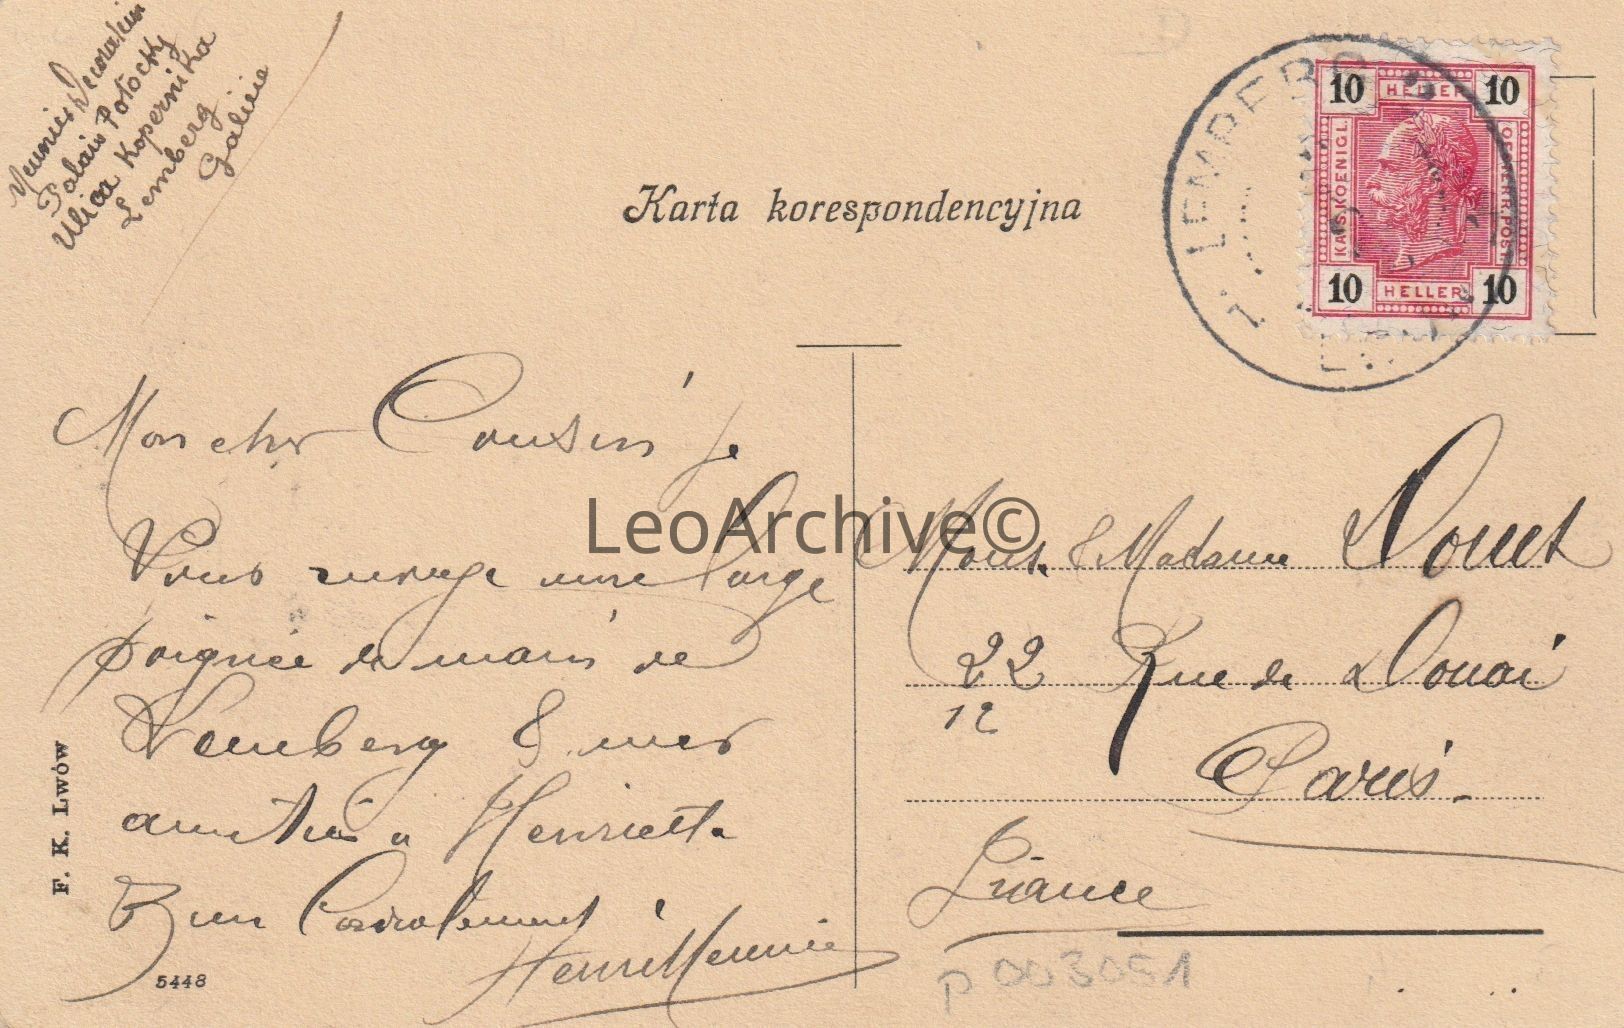 Meunier Decorateur
Palais Potocki
Ulica Kopernika
Lemberg
Galicie
Karta korespondencyjna
LEMBERG
1
10 HELLER 10
KAIS. KOENIGL.
OESTERR. POST
10 HELLER 10
Mon cher Cousin je
Vous envoye une large
poignée de main de
Lemberg & mes
amitiés a Henriette
Bien Cordialement
Henri Meunier
LeoArchive©
Mons. & Madame Douet
22 Rue de Douai
12
Paris.
France
F. K. Lwów
5448
p003051